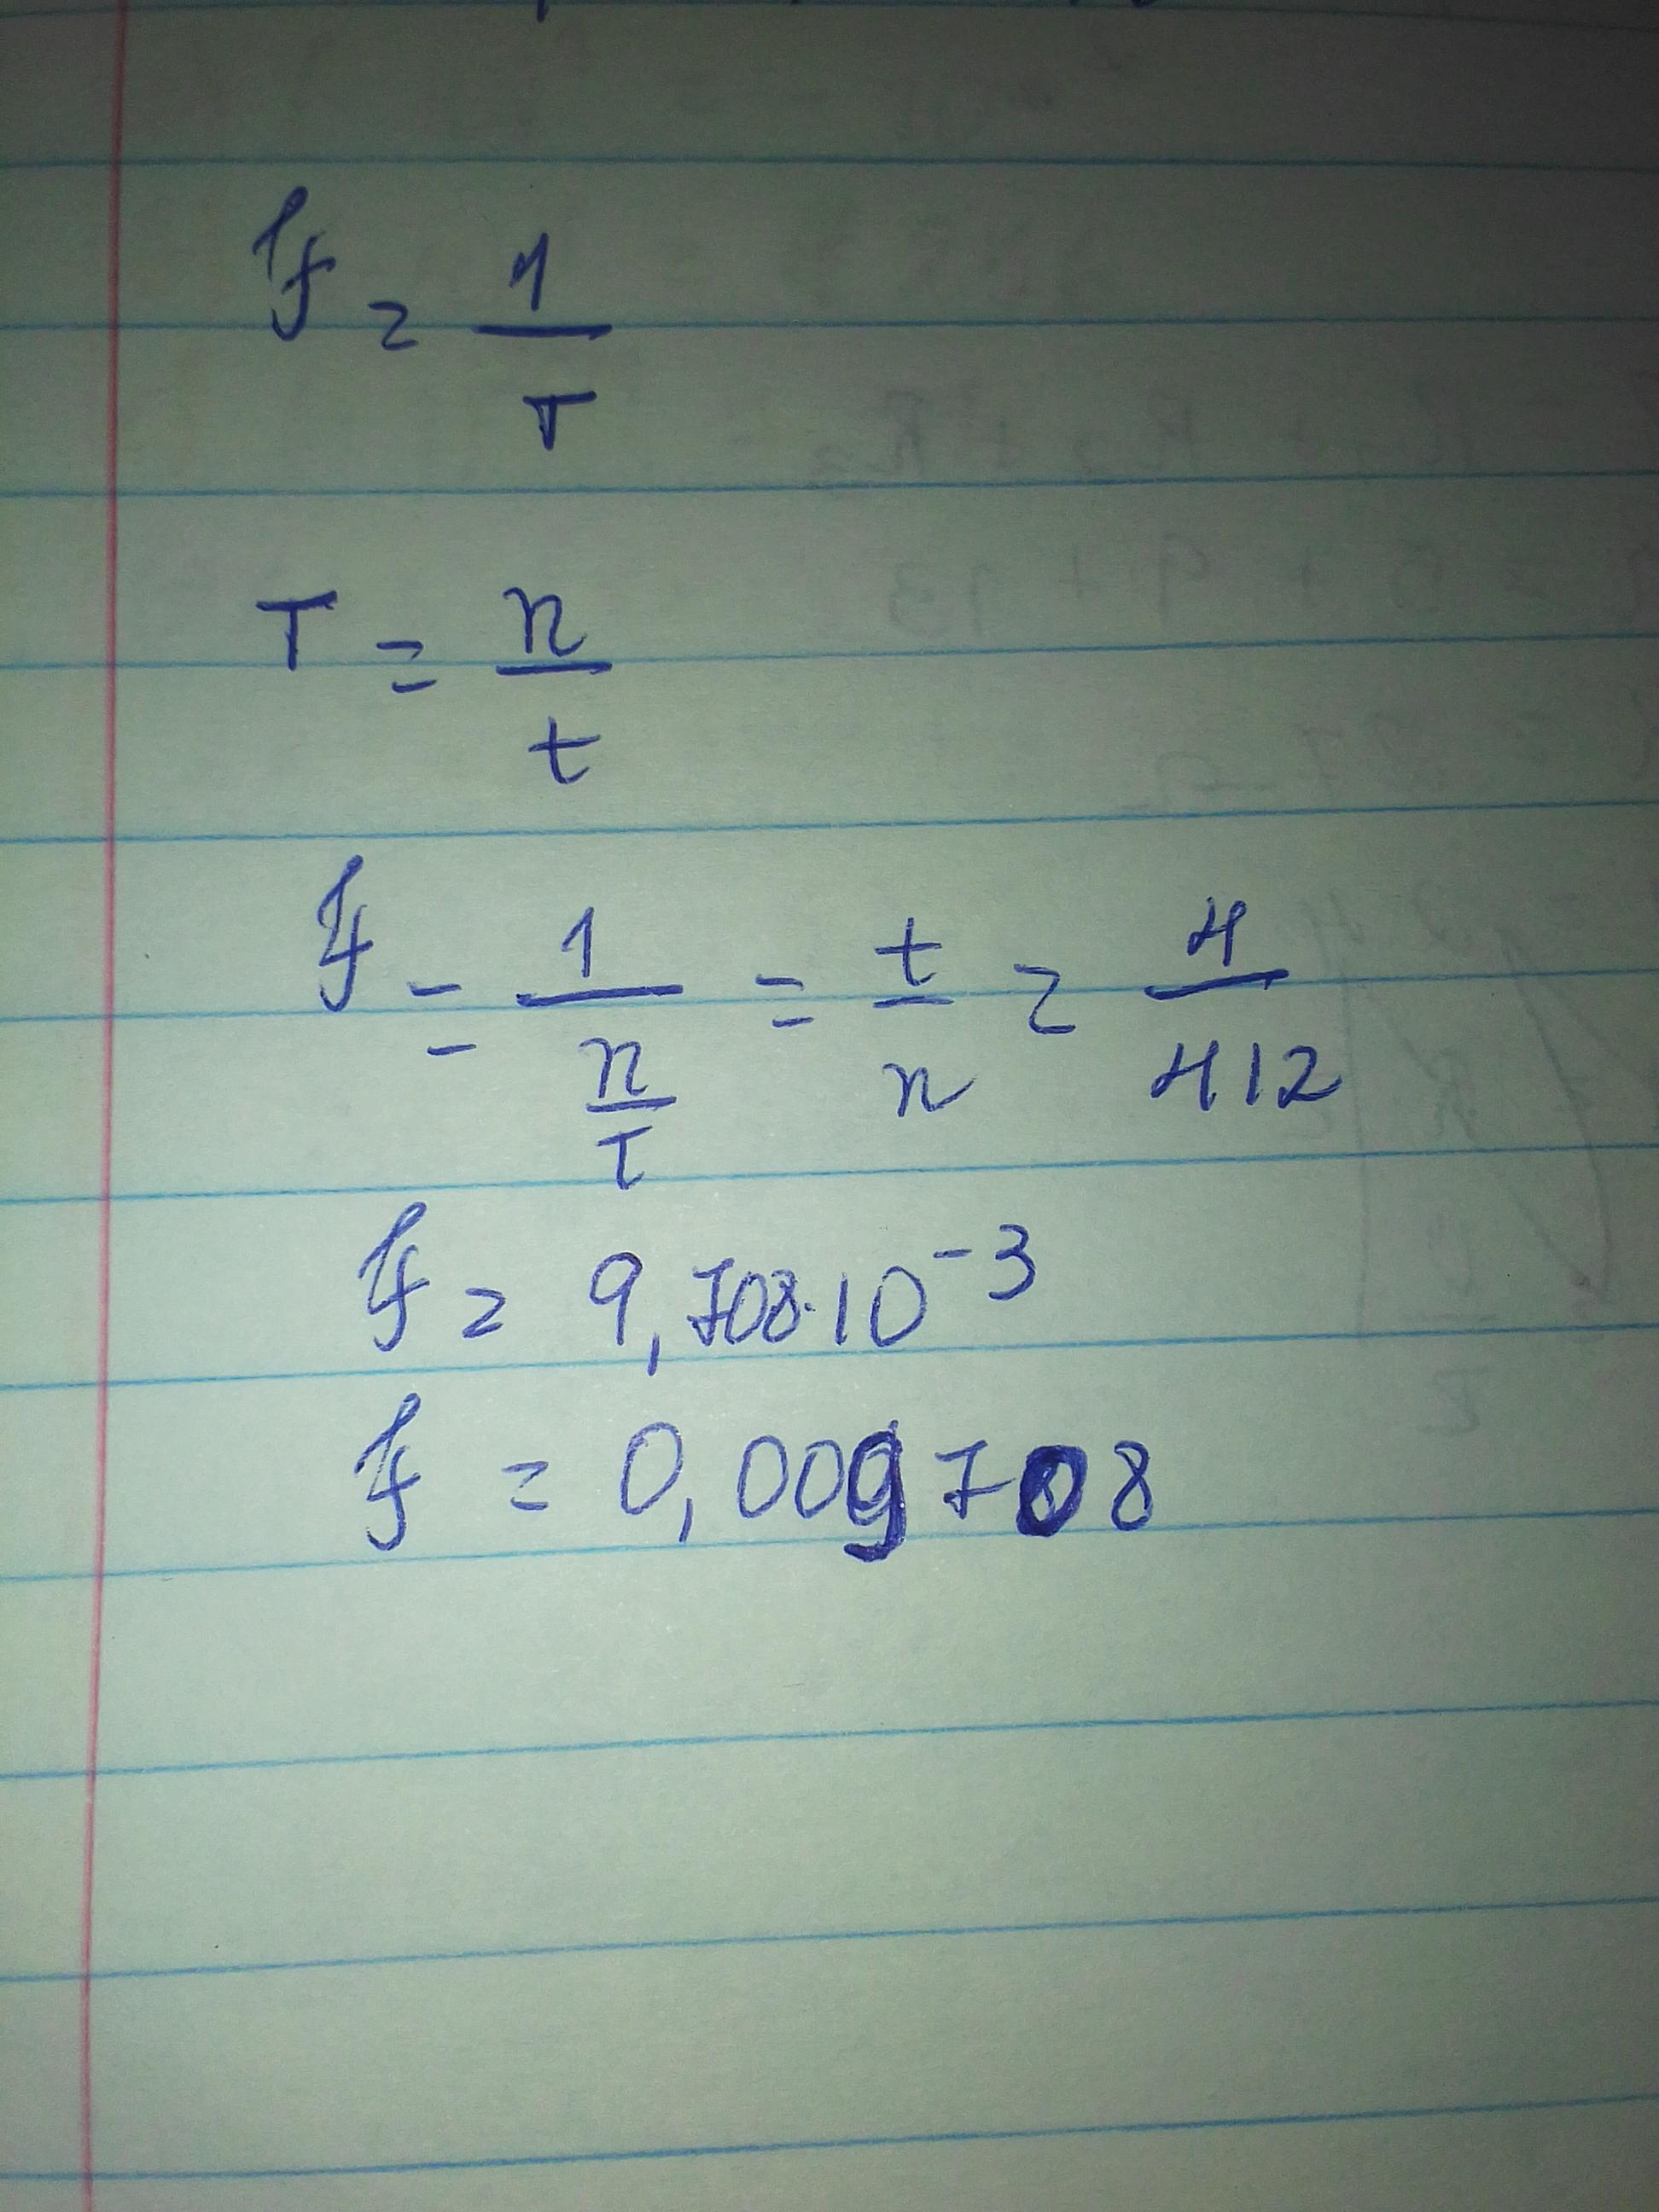 f = 1/T
T = n/t
f = 1/(n/T) = t/n = 4/412
f = 9,708·10⁻³
f = 0,009708